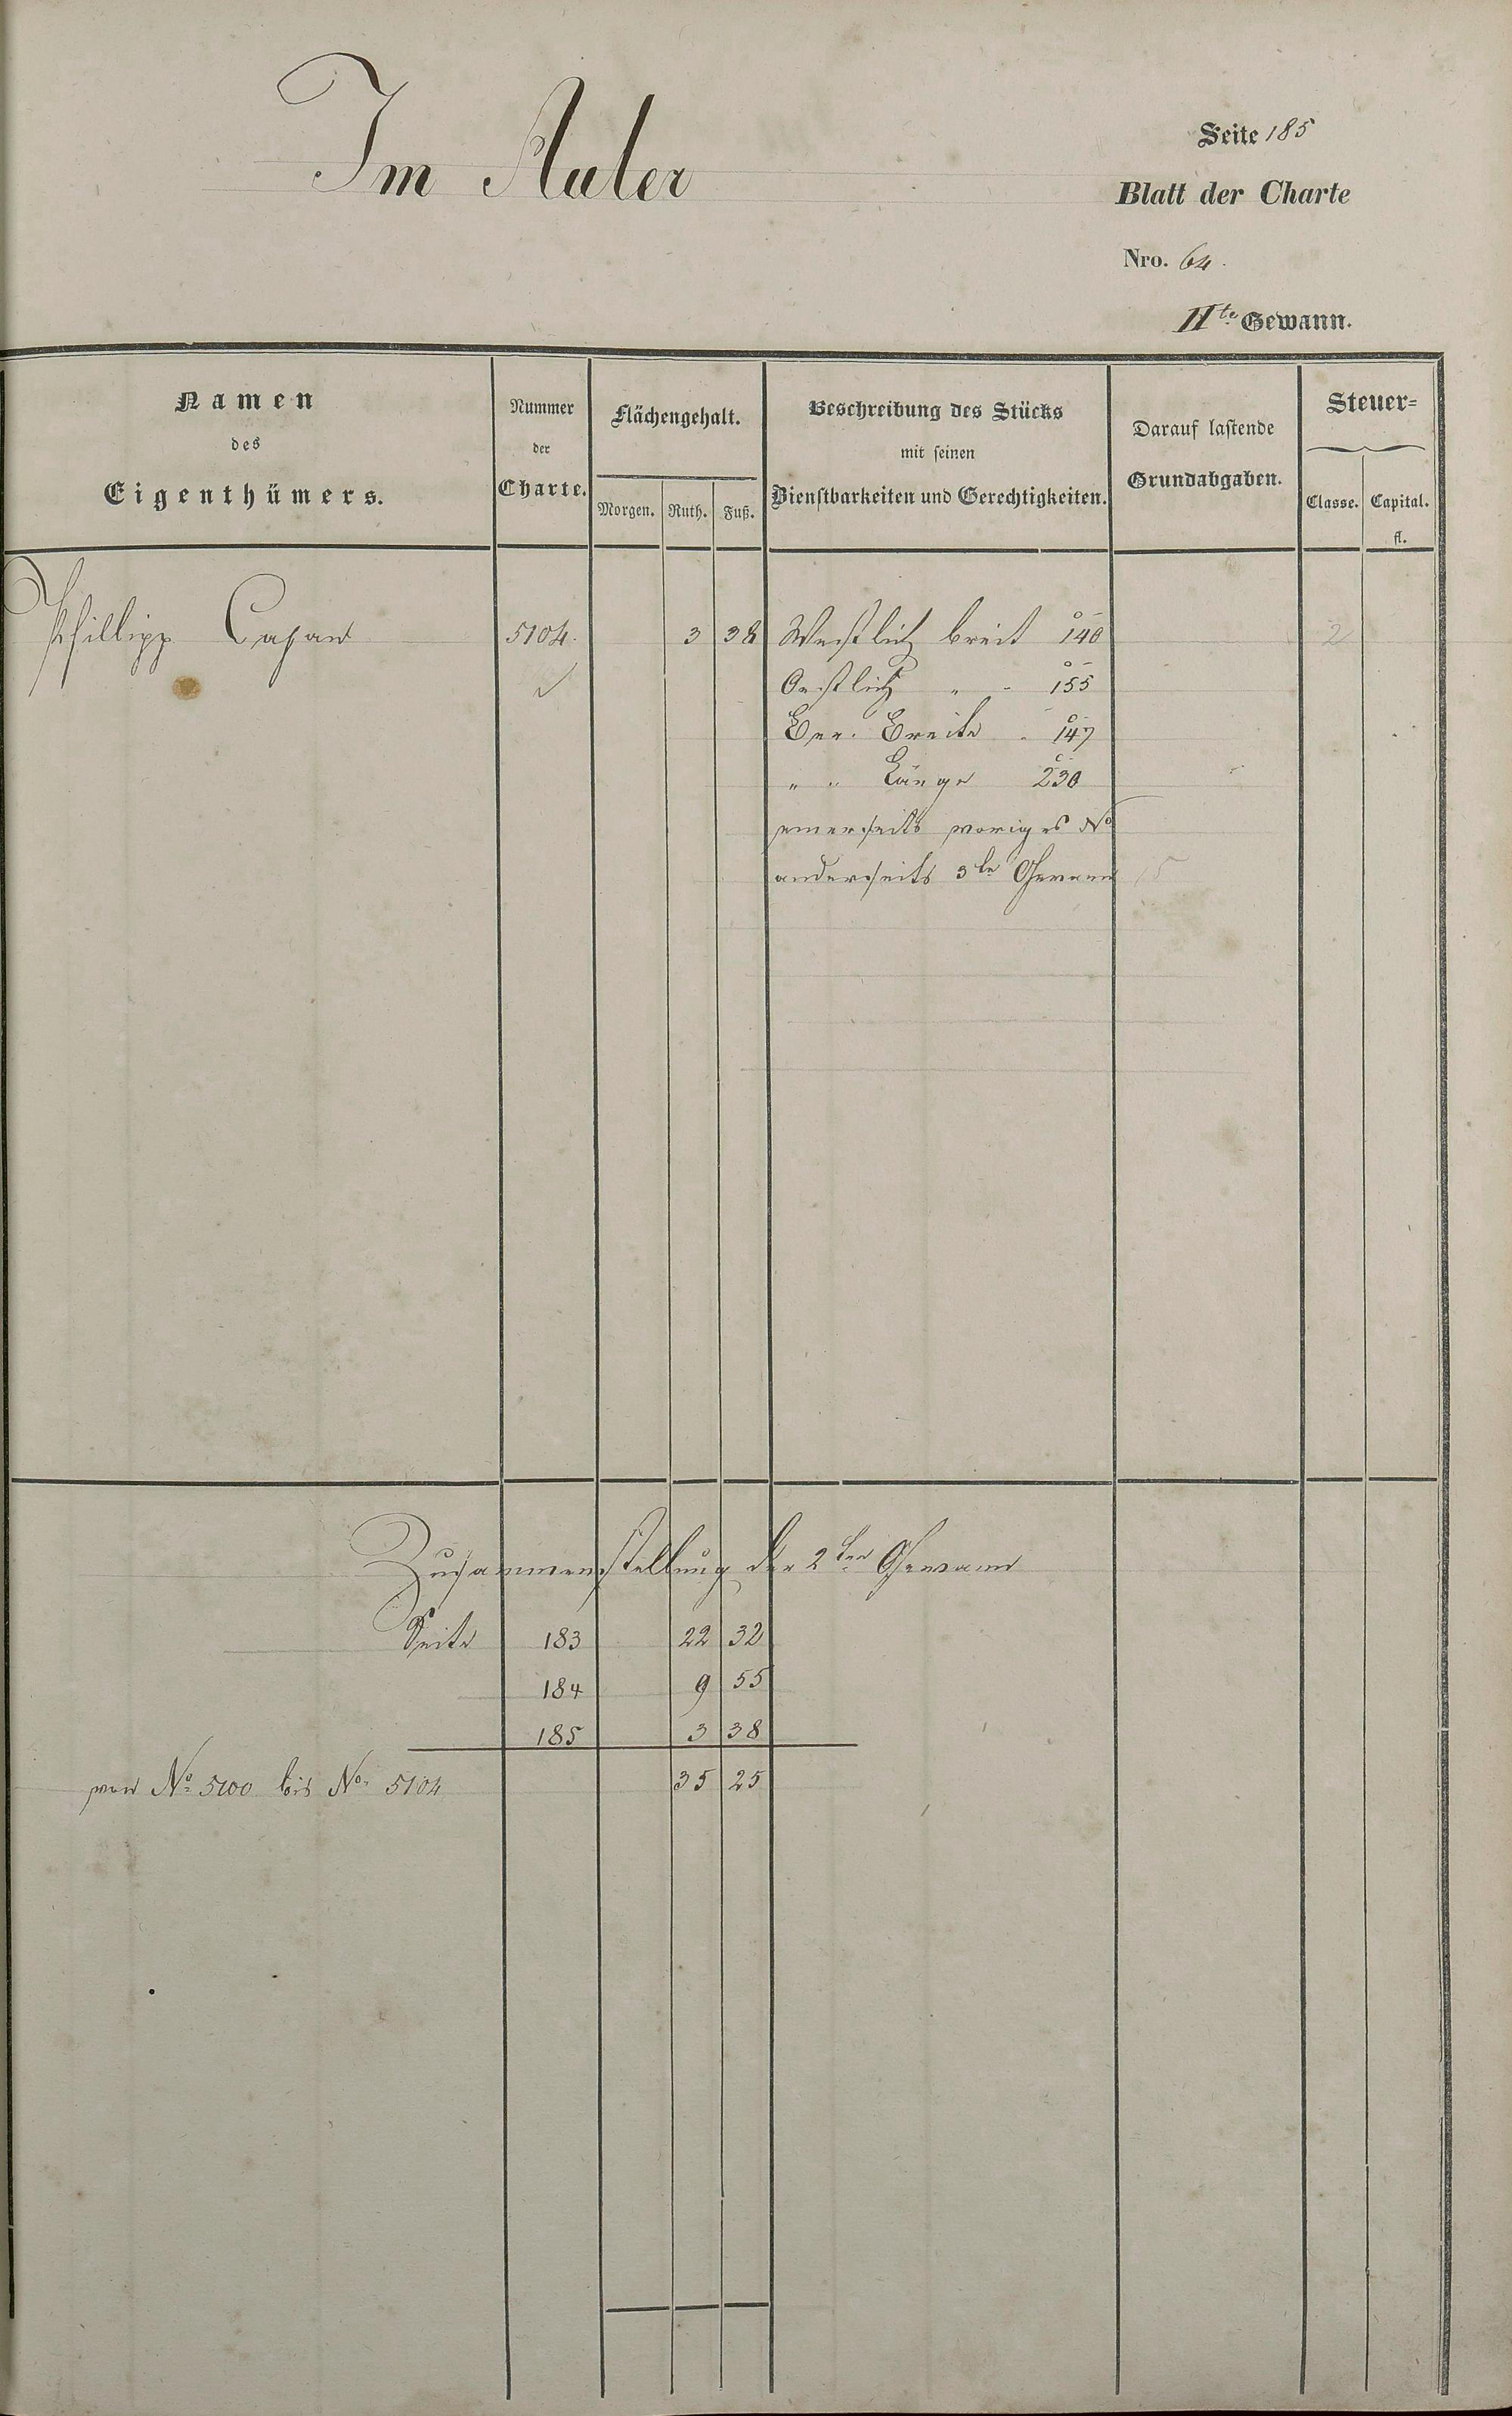 Im Auler
Seite 185
Blatt der Charte
Nro. 64.
IIte Gewann.
Namen
des
Eigenthümers.
Nummer
der
Charte.
Flächengehalt.
Morgen. Ruth. Fuß.
Beschreibung des Stücks
mit seinen
Dienstbarkeiten und Gerechtigkeiten.
Darauf lastende
Grundabgaben.
Steuer-
Classe. Capital.
fl.
Phillipp 5104. 3 38 Westlich breit 140 2
Oestlich " - 155
Ber. Breite - 147
" " Länge 230
einerseits voriges No
anderseits 3te Gewann 15
Zusammenstellung der 2ten Gewann
Seite 183 22 32
184 9 55
185 3 38
von No 5100 bis No. 5104 35 25